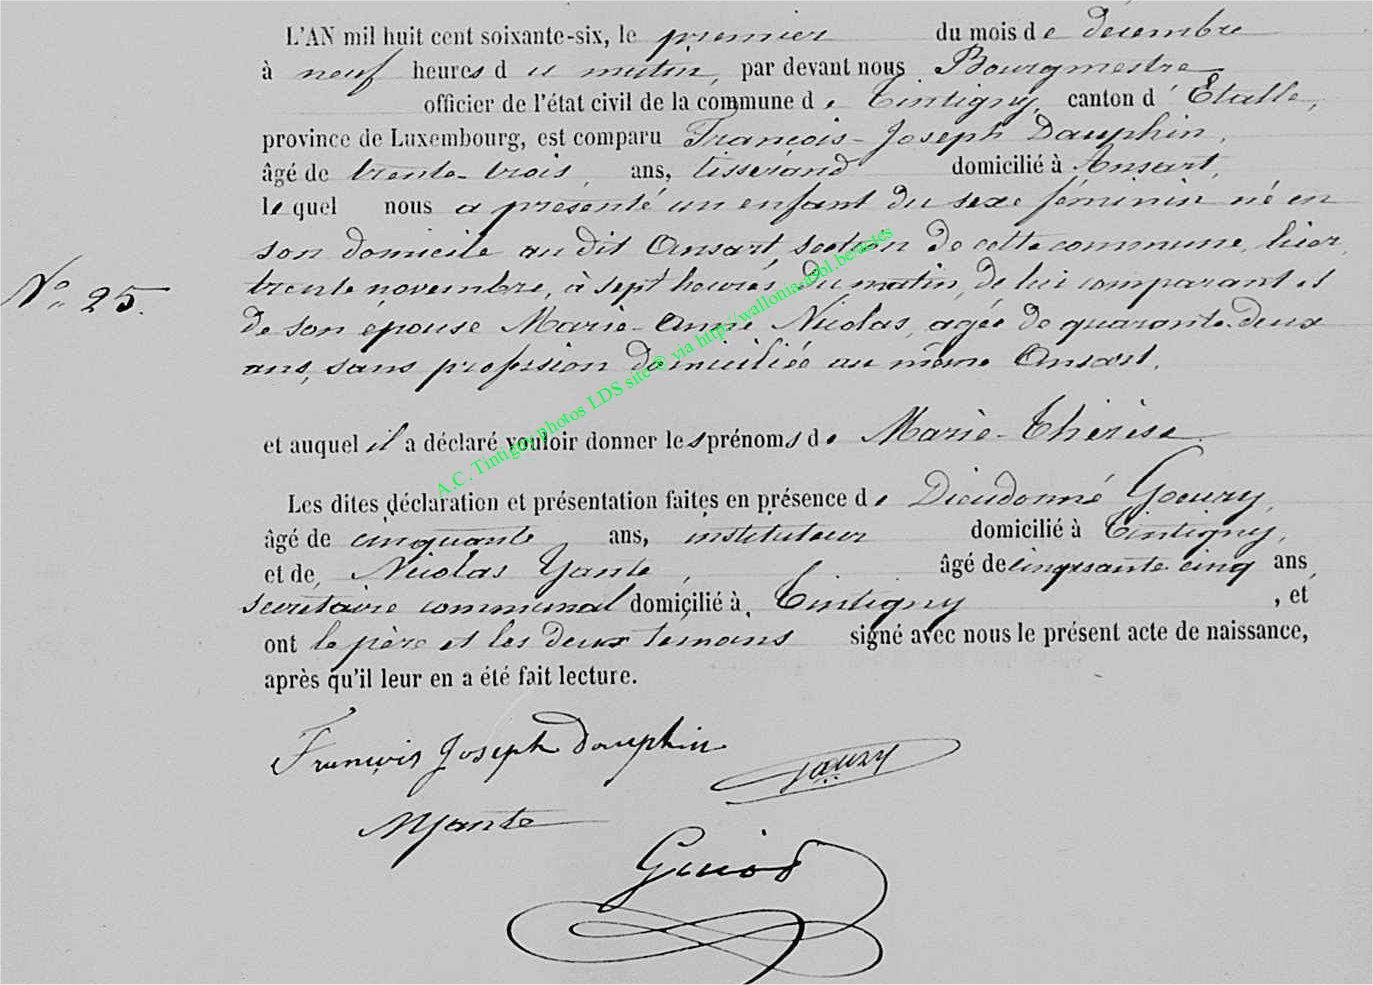 L'AN mil huit cent soixante-six, le premier du mois de décembre
à neuf heures du matin, par devant nous Bourgmestre
officier de l'état civil de la commune de Tintigny canton d'Etalle,
province de Luxembourg, est comparu François-Joseph Dauphin,
âgé de trente-trois ans, tisserand domicilié à Ansart,
lequel nous a présenté un enfant du sexe féminin né en
son domicile au dit Ansart, section de cette commune, hier,
trente novembre, à sept heures du matin, de lui comparant et
de son épouse Marie-Anne Nicolas, agée de quarante-deux
ans, sans profession domiciliée au même Ansart.
N° 25.
et auquel il a déclaré vouloir donner les prénoms de Marie-Thérèse.
Les dites déclaration et présentation faites en présence de Dieudonné Goeury,
âgé de cinquante ans, instituteur domicilié à Tintigny,
et de Nicolas Yante, âgé de cinquante cinq ans
secrétaire communal domicilié à Tintigny, et
ont le père et les deux témoins signé avec nous le présent acte de naissance,
après qu'il leur en a été fait lecture.
François Joseph Dauphin
NYante
A.C. Tintigny photos LDS site © via http://wallonia-asbl.be/actes